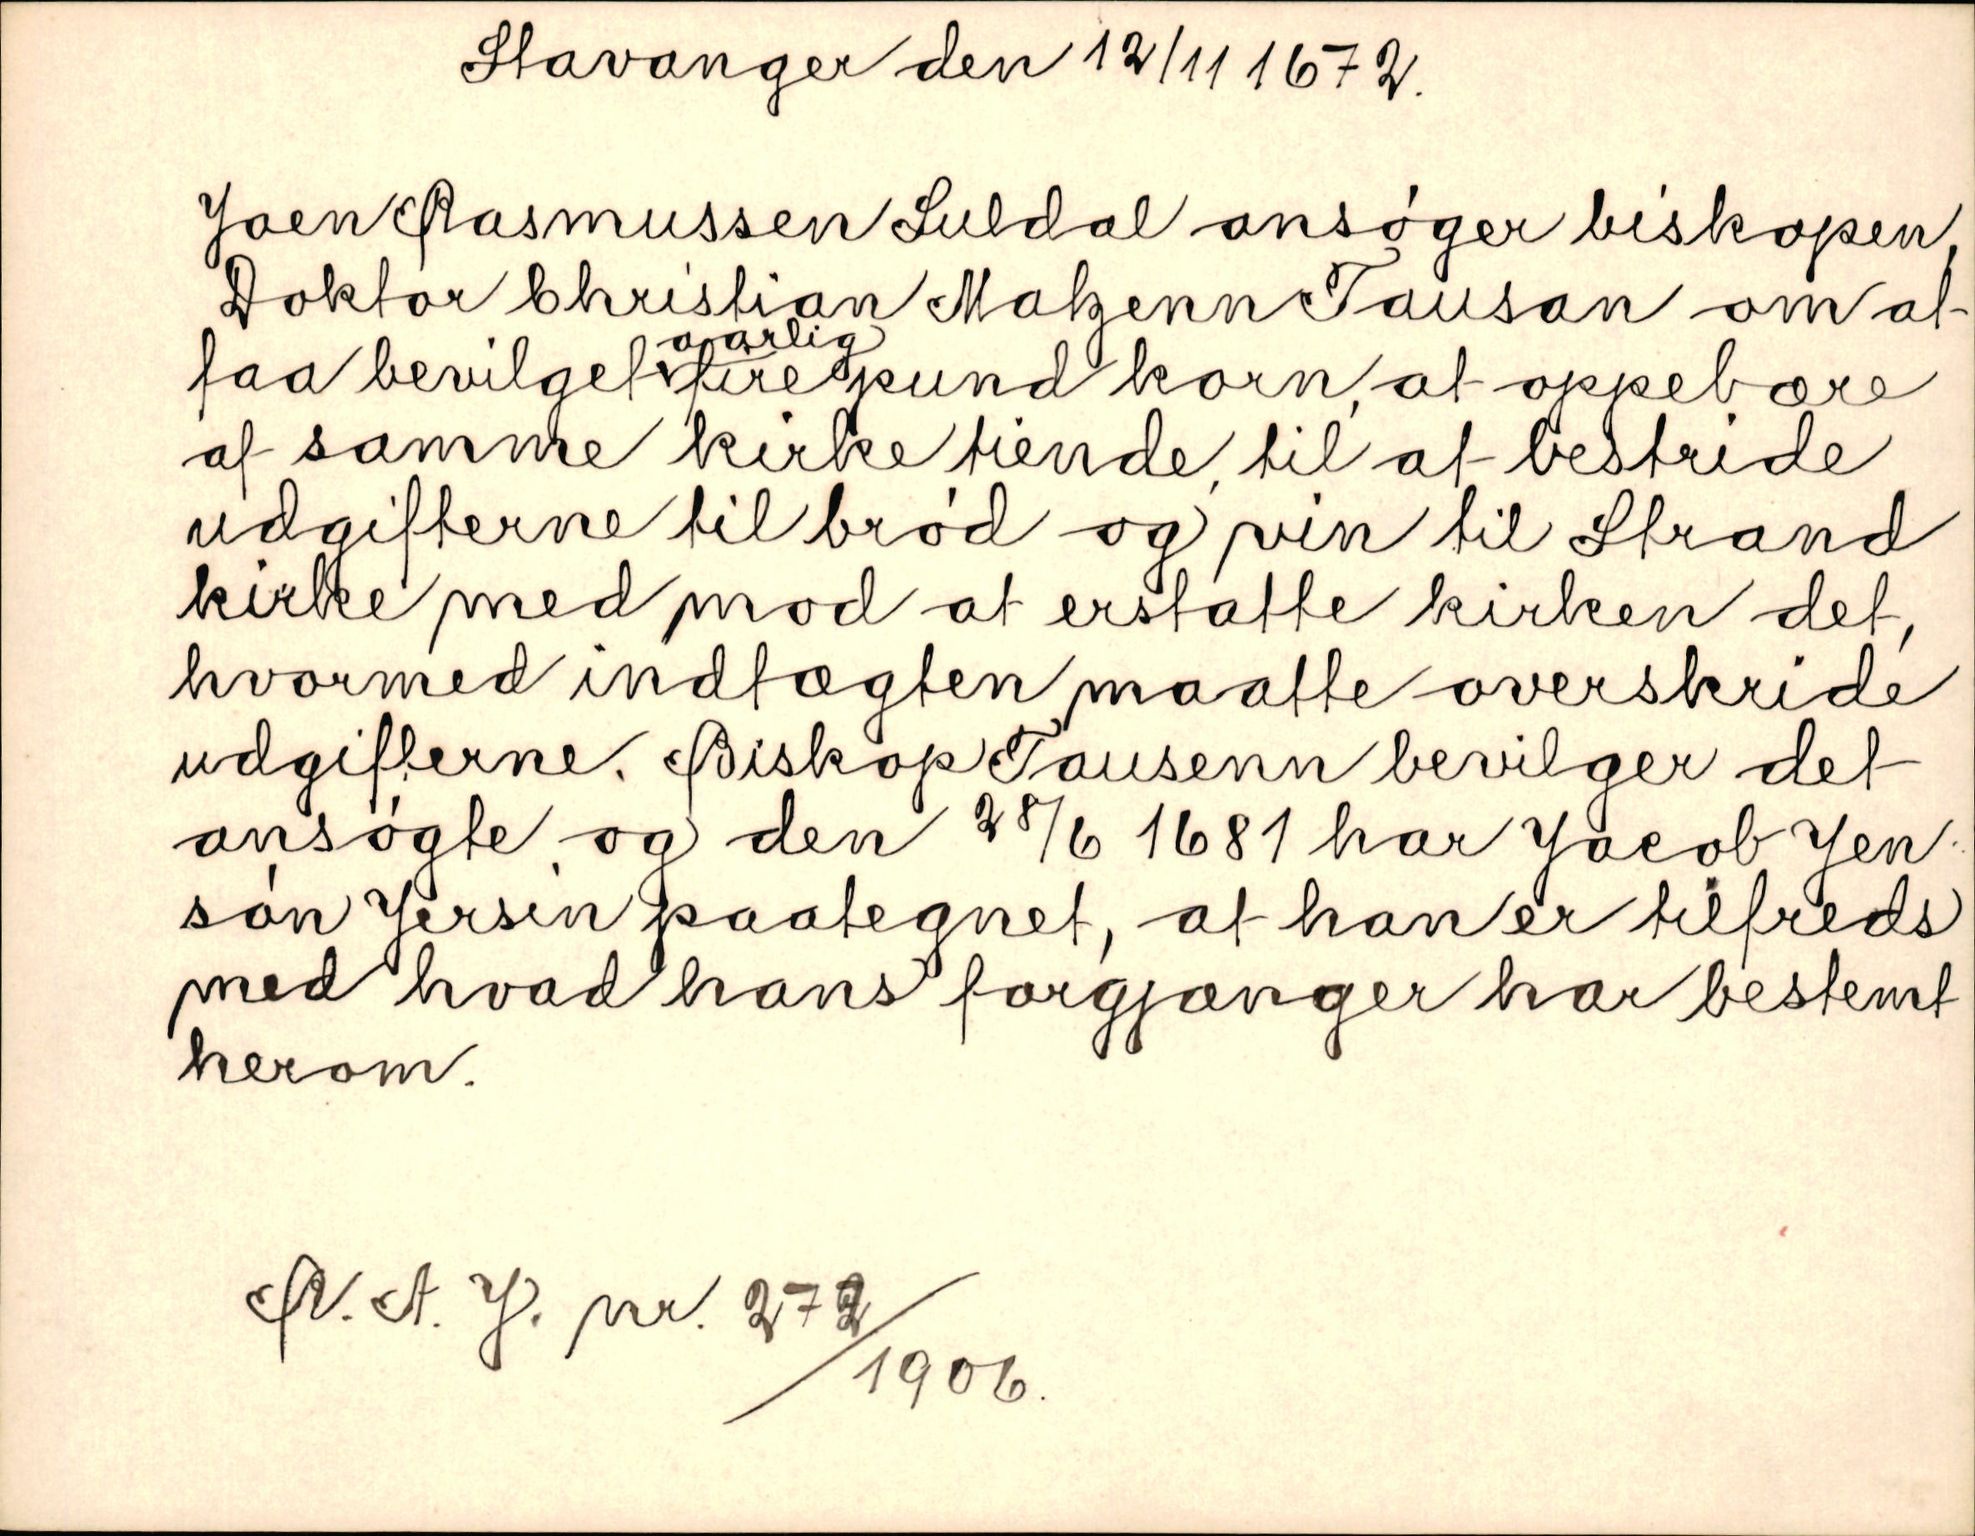 Stavanger den 12/11 1672.
Joen Rasmussen Suldal ansøger biskopen,
Doktor Christian Matzenn Tausan om at
faa bevilget aarlig fire pund korn, at oppebære
af samme kirke tiende, til at bestride
udgifterne til brød og vin til Strand
kirke med mod at erstatte kirken det,
hvormed indtægten maatte overskride
udgifterne. Biskop Tausenn bevilger det
ansøgte, og den 28/6 1681 har Jacob Jen-
søn Jersin paategnet, at han er tilfreds
med hvad hans forgjænger har bestemt
herom.
R. A. J. nr. 272/1906.